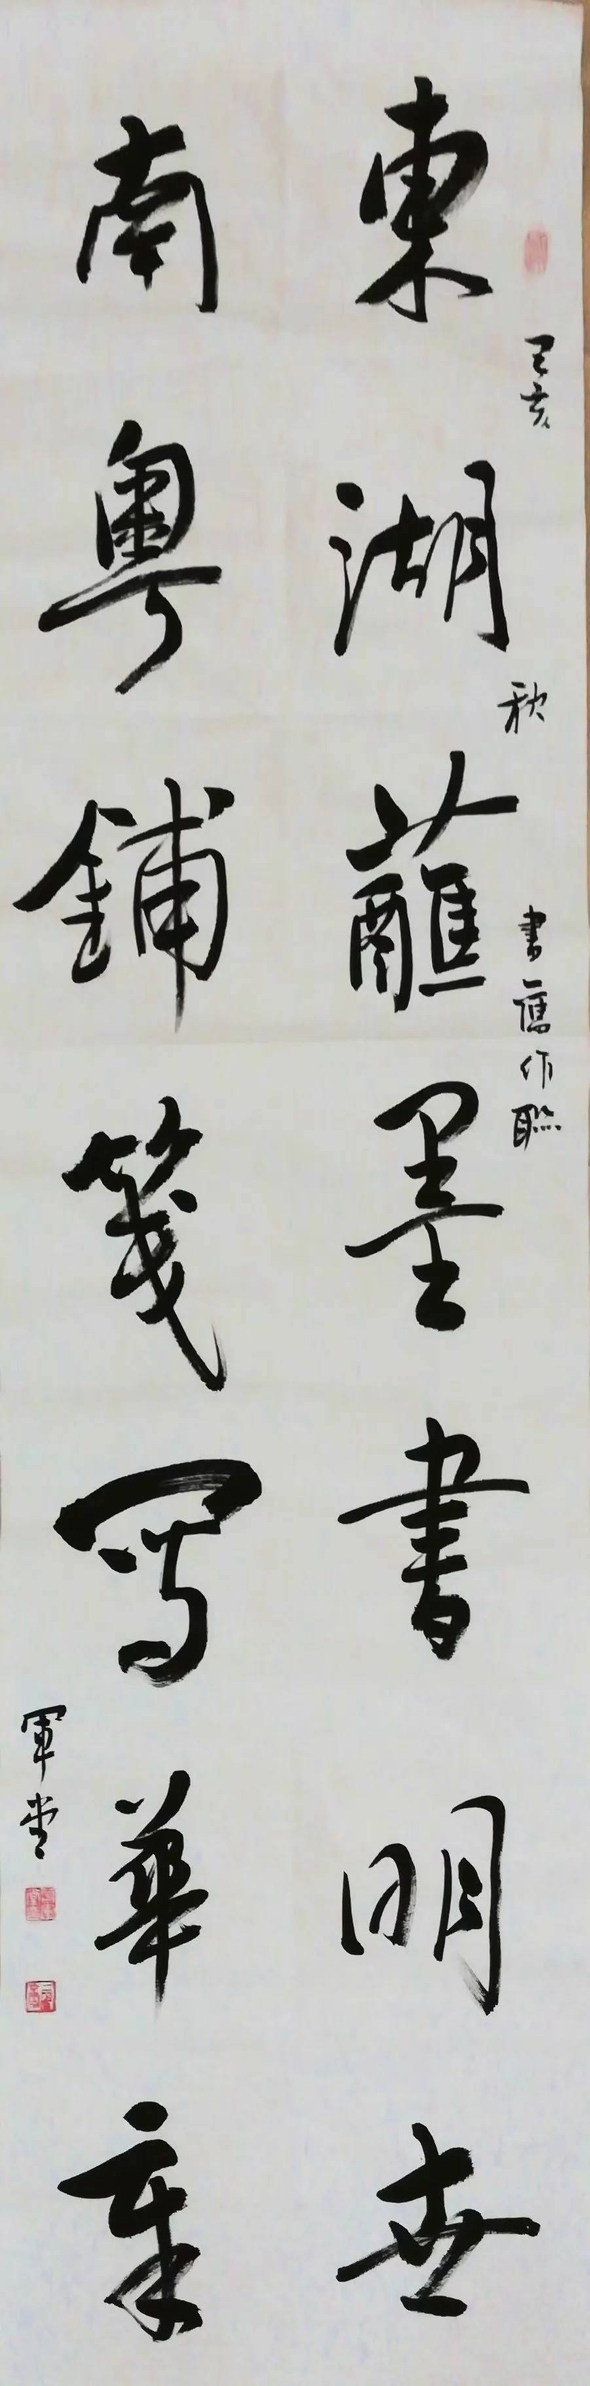 己亥
秋
書舊作聯
東湖蘸墨書明世
南粵鋪箋寫華章
軍堂